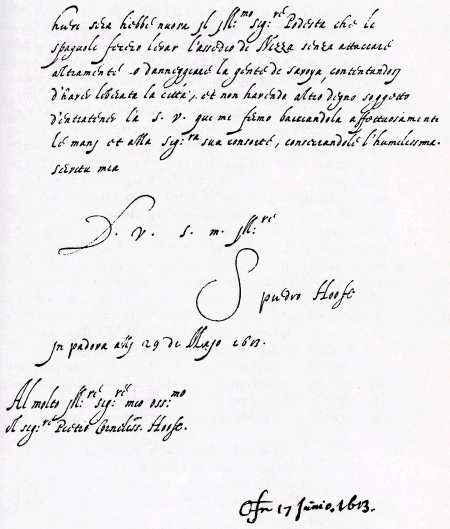 hieri sera hebbe nuova jl Jll:mo sig:re Podesta che le
spagnole fecero levar l'assedio de Nizza senza attaccare
altramente o danneggiare la gente de savoya, contentandosi
d'haver liberata la città, et non havendo altro degno soggetto
d'entratener là s. v. qui me firmo basciandola affettuosamente
le manj et alla sig:ra sua consorte, conservandole l'humilissima
servitu mia
D. v. s. m. Jll:re
S pietro Hoofe
Jn padova alij 29 de Majo 1613.
Al molto Jll:re sig:re mio oss:mo
Il sig:re Pietro Corneliss. Hoofe.
17 Junio. 1613.